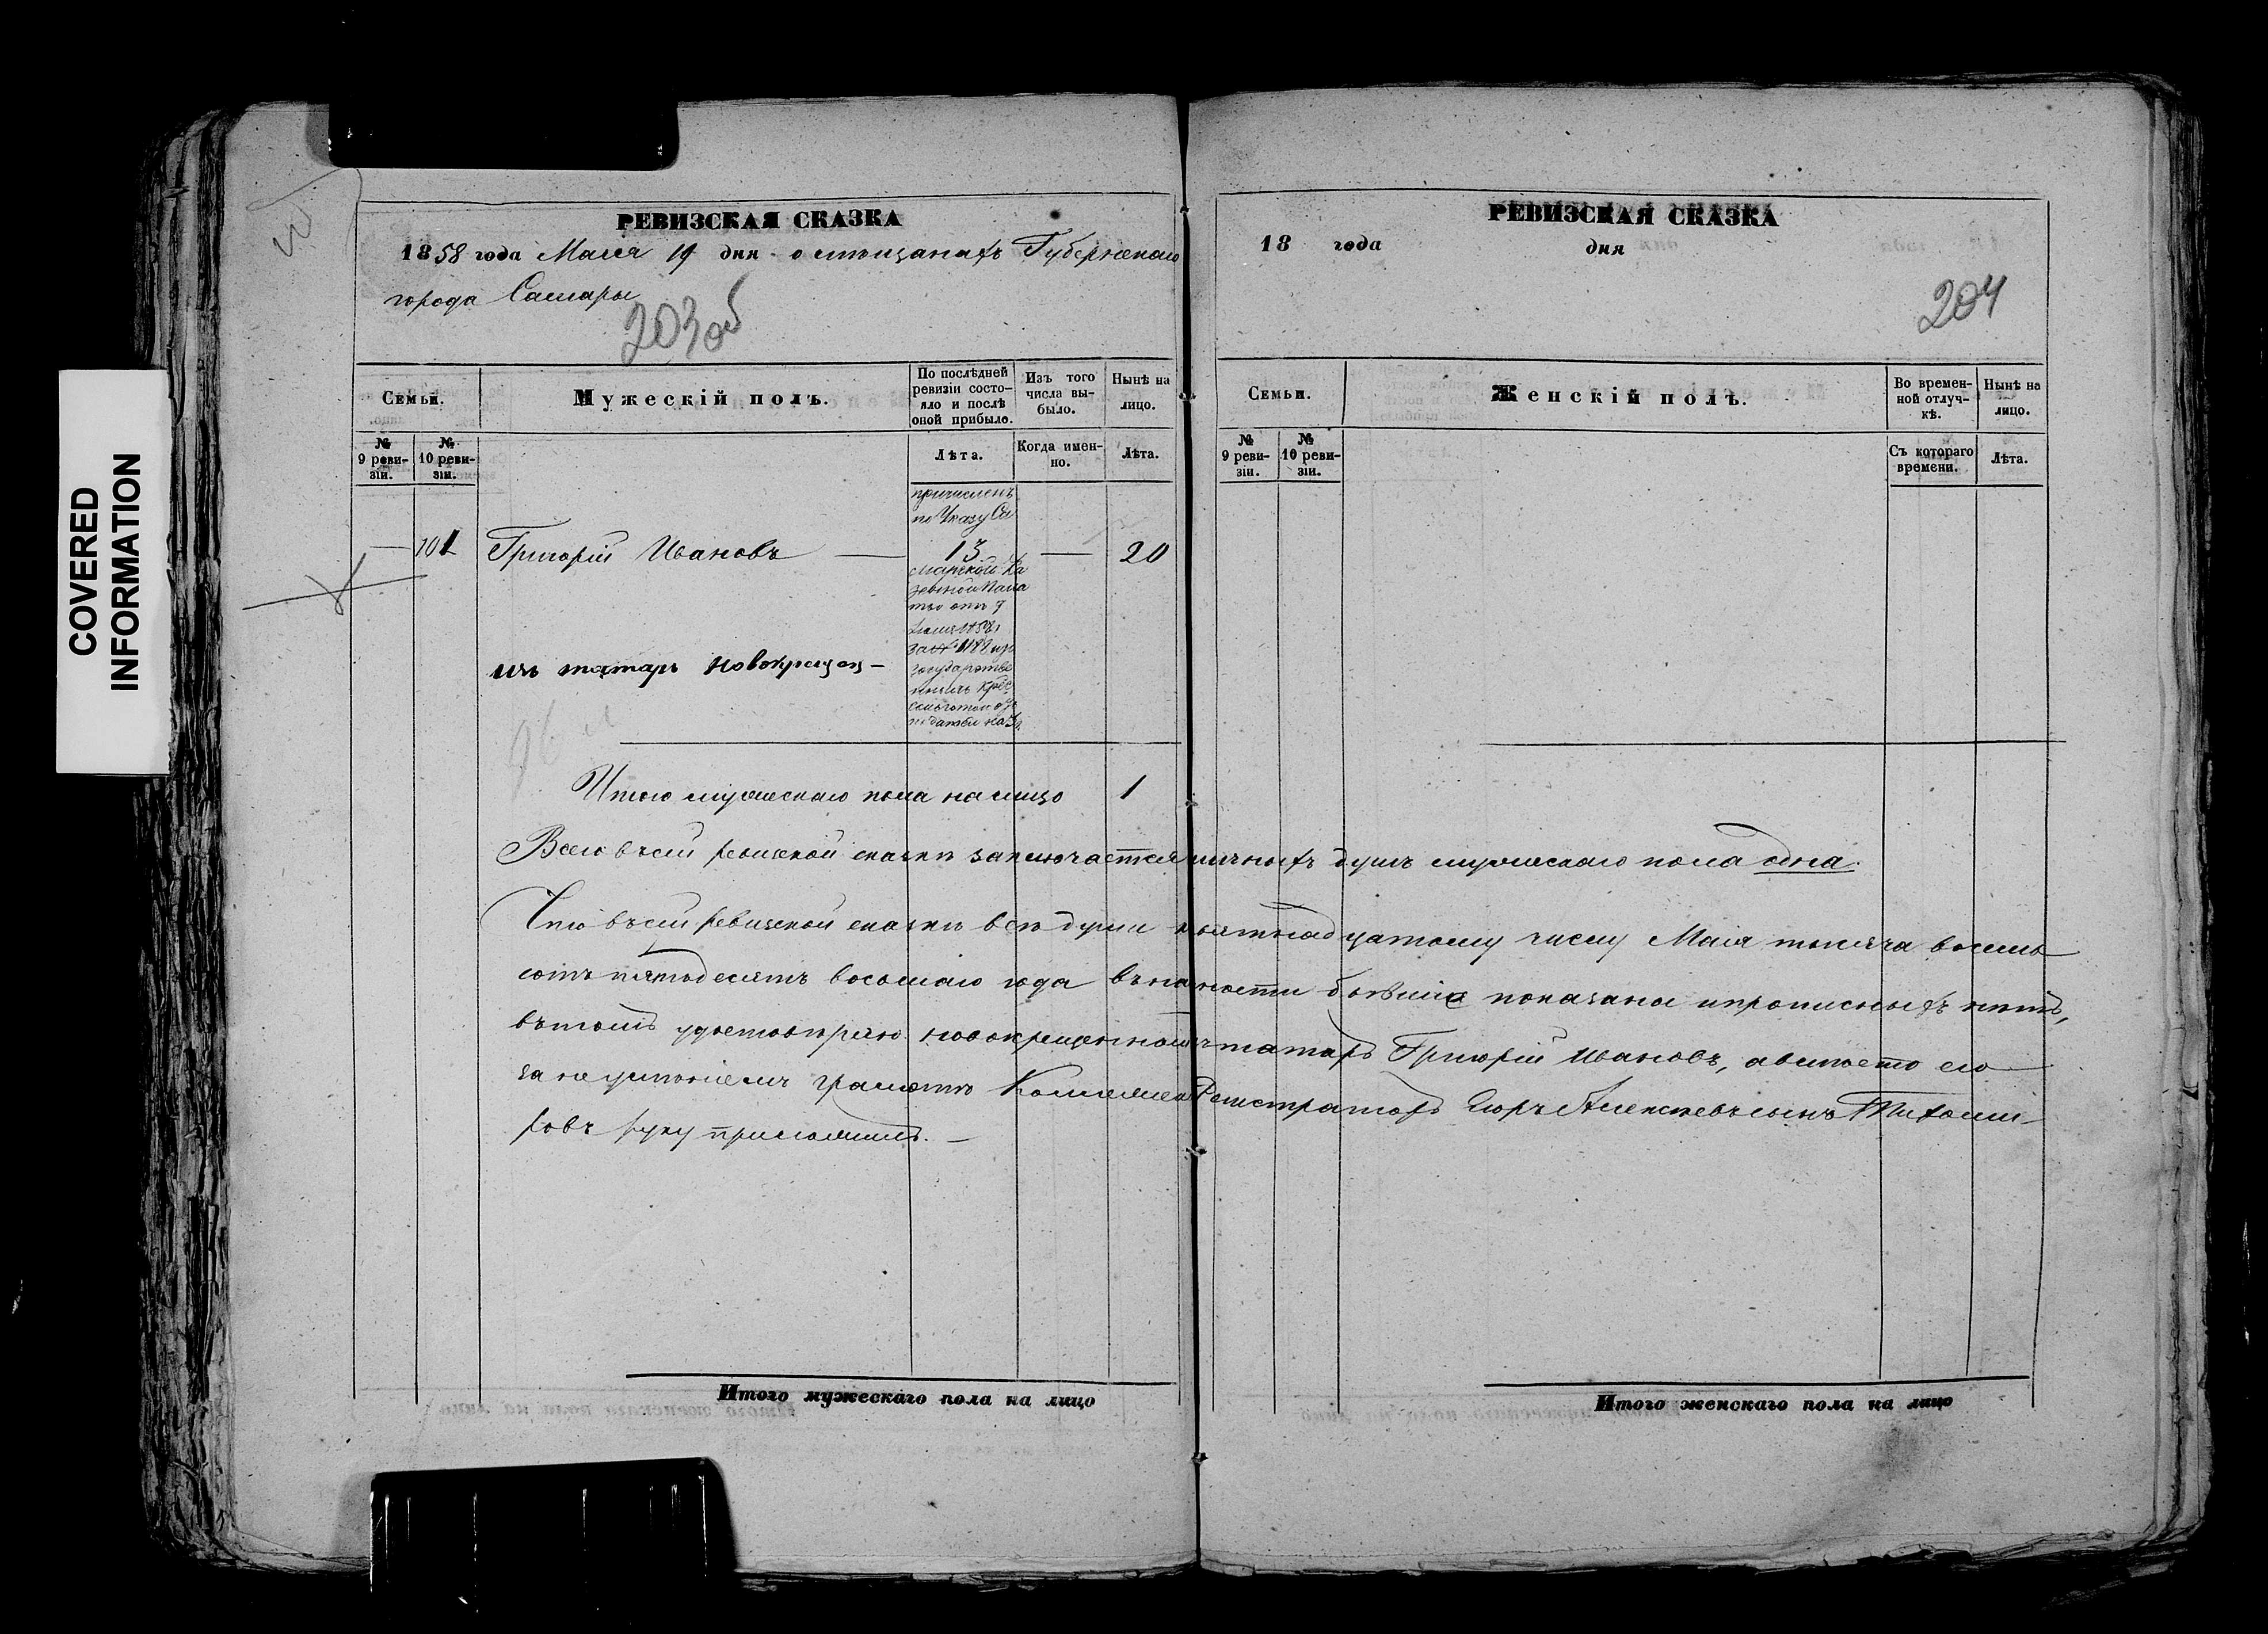 COVERED
INFORMATION
РЕВИЗСКАЯ СКАЗКА
1858 года Маія 19 дня о мѣщанахъ Губернскаго
города Самары
203об
Семьи.
Мужескій полъ.
По послѣдней
ревизіи состо-
яло и послѣ
оной прибыло.
Изъ того
числа вы-
было.
Нынѣ на
лицо.
№
9 реви-
зіи.
№
10 реви-
зіи.
Лѣта.
Когда имен-
но.
Лѣта.
причисленъ
по Указу Са
— 101 Григорій Ивановъ — 13 — 20
марской Ка
зенной Пала
ты отъ 7
государстве
изъ татаръ новокрещен-
Итого мужескаго пола на лицо 1
Всего въ сей ревизской сказкѣ заключается личныхъ душъ мужескаго пола одна.
Что въ сей ревизской сказкѣ всѣ души къ пятнадцатому числу Маія тысяча восемь
сотъ пятьдесятъ восьмаго года въ наличности бывшія показаны и прописныхъ нѣтъ,
въ томъ удостовѣряю новокрещенной изъ татаръ Григорій Ивановъ, а вмѣсто его
за неумѣніемъ грамотѣ Коллежск Регистраторъ Егоръ Алексѣевъ сынъ Тихоми-
ровъ руку приложилъ. —
Итого мужескаго пола на лицо
РЕВИЗСКАЯ СКАЗКА
18 года дня
204
Семьи.
Женскій полъ.
Во времен-
ной отлуч-
кѣ.
Нынѣ на
лицо.
№
9 реви-
зіи.
№
10 реви-
зіи.
Съ котораго
времени.
Лѣта.
Итого женскаго пола на лицо